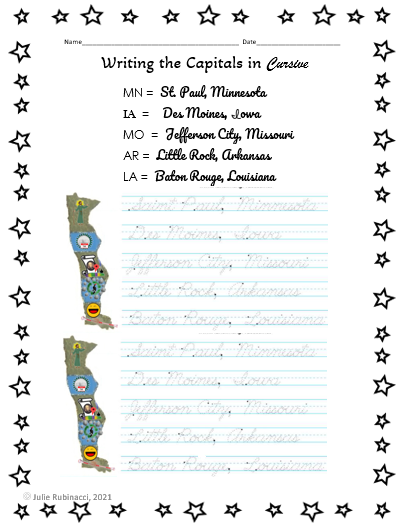 Name____________________ Date____________________
Writing the Capitals in Cursive
MN = St. Paul, Minnesota
IA = Des Moines, Iowa
MO = Jefferson City, Missouri
AR = Little Rock, Arkansas
LA = Baton Rouge, Louisiana
Saint Paul, Minnesota
Des Moines, Iowa
Jefferson City, Missouri
Little Rock, Arkansas
Baton Rouge, Louisiana
Saint Paul, Minnesota
Des Moines, Iowa
Jefferson City, Missouri
Little Rock, Arkansas
Baton Rouge, Louisiana
© Julie Rubinacci, 2021